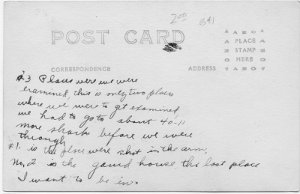 200 641
POST CARD
AZO
PLACE
STAMP
HERE
AZO
CORRESPONDENCE
ADDRESS
#3 Place were we were
examined this is one, two places
where we were to get examined
we had to go to about 40 -
more shacks before we were
through.
#1. is the place were shot in the arm,
No, 2 is the gaurd house the last place
I want to be in.